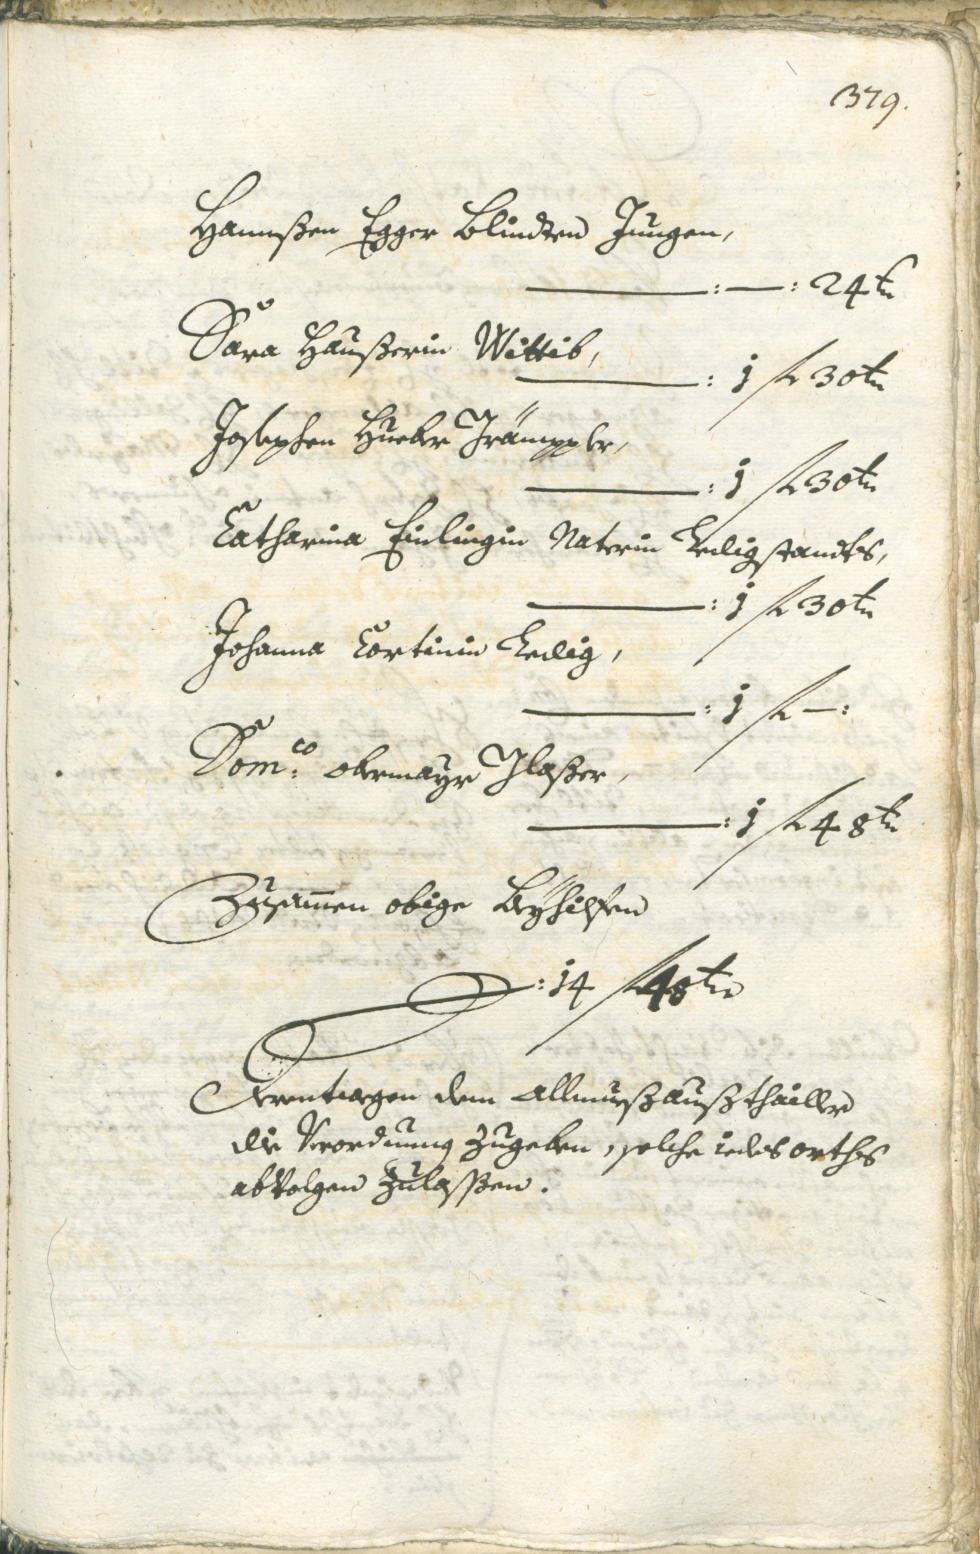 379.
Hannßen Egger Blindten Jungen,
———:—: 24 kr
Sara Haußerin Wittib,
———: 1 fl 30 kr
Josephen Hueber
———: 1 fl 30 kr
Catharina Einlingin Naterin Ledigstandts,
———: 1 fl 30 kr
Johanna Cortinin Ledig,
———: 1 fl —:
Dom:co Obermayr Glaßer,
———: 1 fl 48 kr
Zusamen obige Beyhilfen
: 14 fl 48 kr
Derentwegen dem Allmueßaußthailler
die Verordnung zugeben, solche iedes orths
abvolgen zulassen.